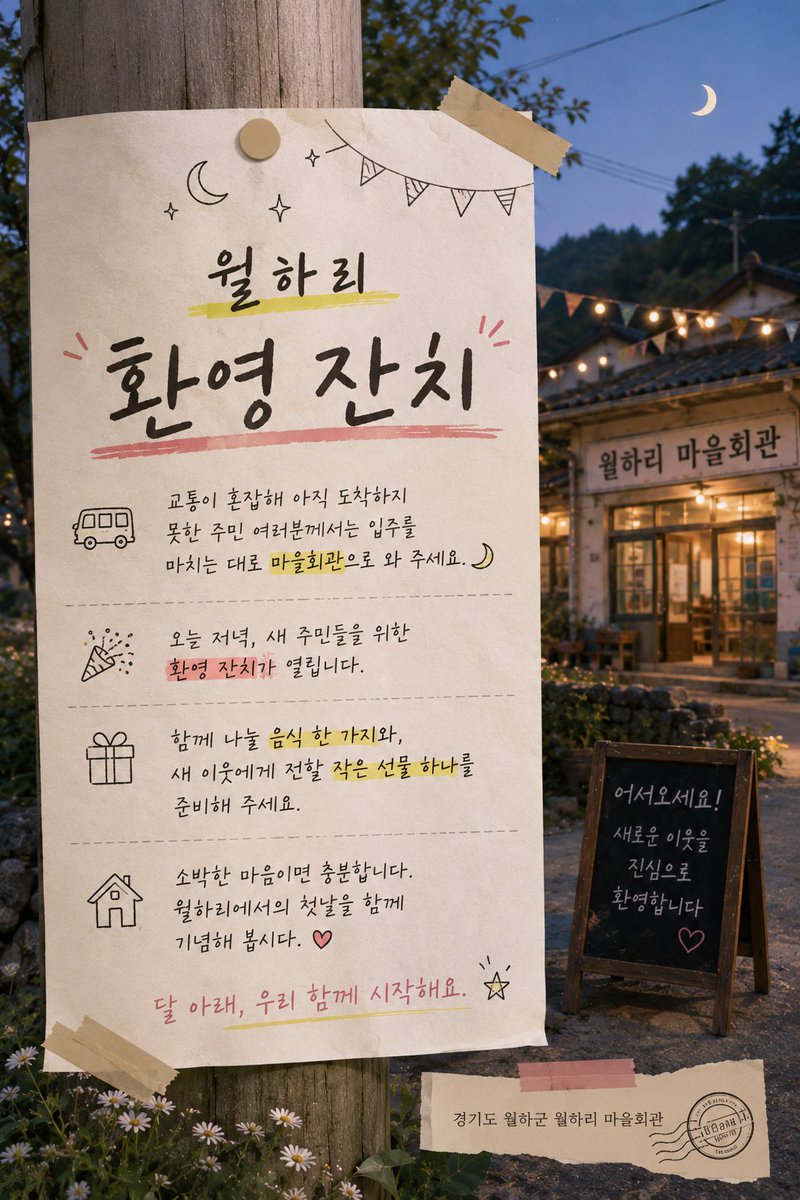 월하리
환영 잔치
교통이 혼잡해 아직 도착하지
못한 주민 여러분께서는 입주를
마치는 대로 마을회관으로 와 주세요.
오늘 저녁, 새 주민들을 위한
환영 잔치가 열립니다.
함께 나눌 음식 한 가지와,
새 이웃에게 전할 작은 선물 하나를
준비해 주세요.
소박한 마음이면 충분합니다.
월하리에서의 첫날을 함께
기념해 봅시다.
달 아래, 우리 함께 시작해요.
월하리 마을회관
어서오세요!
새로운 이웃을
진심으로
환영합니다
경기도 월하군 월하리 마을회관